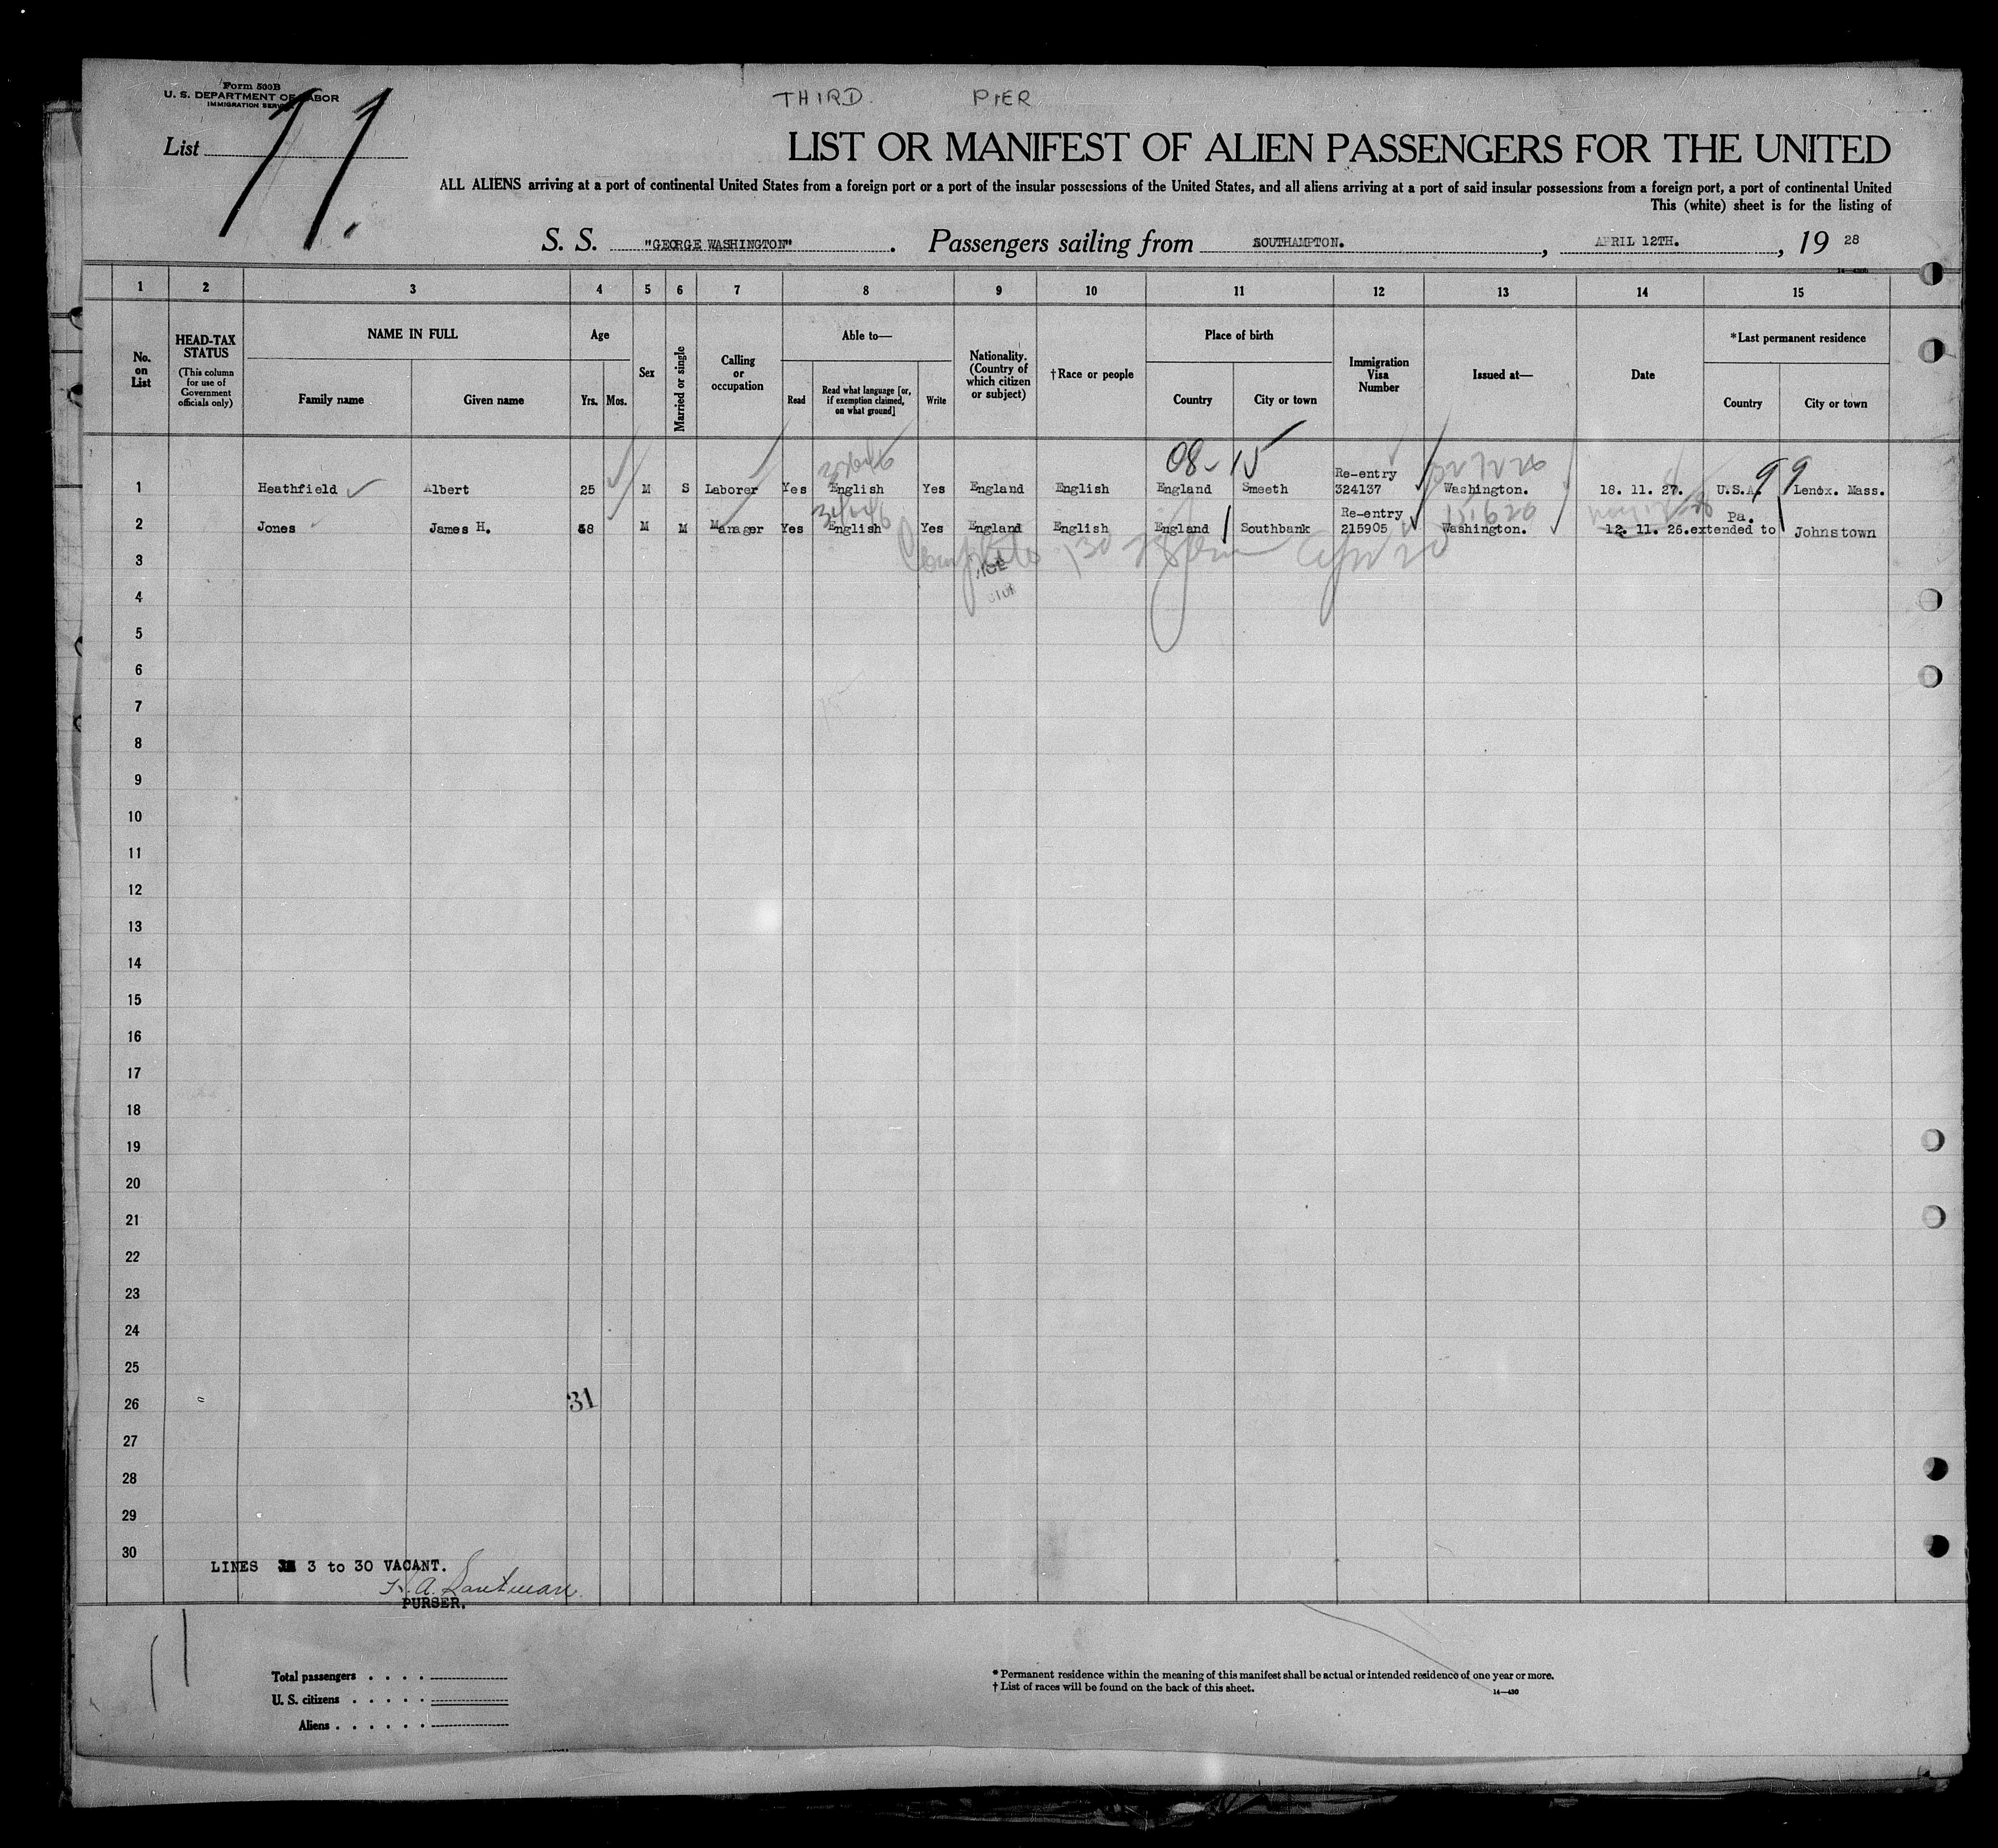 Form 500B
U. S. DEPARTMENT OF LABOR
IMMIGRATION SERVICE
THIRD. PIER
List 77.
LIST OR MANIFEST OF ALIEN PASSENGERS FOR THE UNITED
ALL ALIENS arriving at a port of continental United States from a foreign port or a port of the insular possessions of the United States, and all aliens arriving at a port of said insular possessions from a foreign port, a port of continental United
This (white) sheet is for the listing of
S. S. "GEORGE WASHINGTON". Passengers sailing from SOUTHAMPTON., APRIL 12TH., 19 28
1 2 3 4 5 6 7 8 9 10 11 12 13 14 15
No. on List
HEAD-TAX STATUS
(This column for use of Government officials only)
NAME IN FULL
Family name
Given name
Age
Yrs. Mos.
Sex
Married or single
Calling or occupation
Able to—
Read
Read what language [or, if exemption claimed, on what ground]
Write
Nationality. (Country of which citizen or subject)
†Race or people
Place of birth
Country
City or town
Immigration Visa Number
Issued at—
Date
*Last permanent residence
Country
City or town
08-15
99
1 Heathfield Albert 25 M S Laborer Yes English Yes England English England Smeeth Re-entry 324137 Washington. 18. 11. 27. U.S.A. Lenox. Mass.
2 Jones James H. 48 M M Manager Yes English Yes England English England Southbank Re-entry 215905 Washington. 12. 11. 26.extended to Pa. Johnstown
3
4
5
6
7
8
9
10
11
12
13
14
15
16
17
18
19
20
21
22
23
24
25
26 31
27
28
29
30
LINES 3 to 30 VACANT.
PURSER.
Total passengers
U. S. citizens
Aliens
* Permanent residence within the meaning of this manifest shall be actual or intended residence of one year or more.
† List of races will be found on the back of this sheet.
14—430